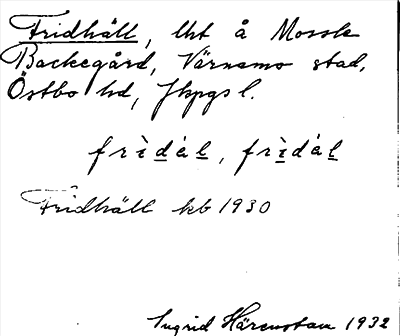 Fridhäll, lht å Mossle
Backegård, Värnamo stad,
Östbo hd, Jkpgs l.
frìdáḷ, frìdáḷ
Fridhäll kb 1930
Ingrid Härenstam 1932